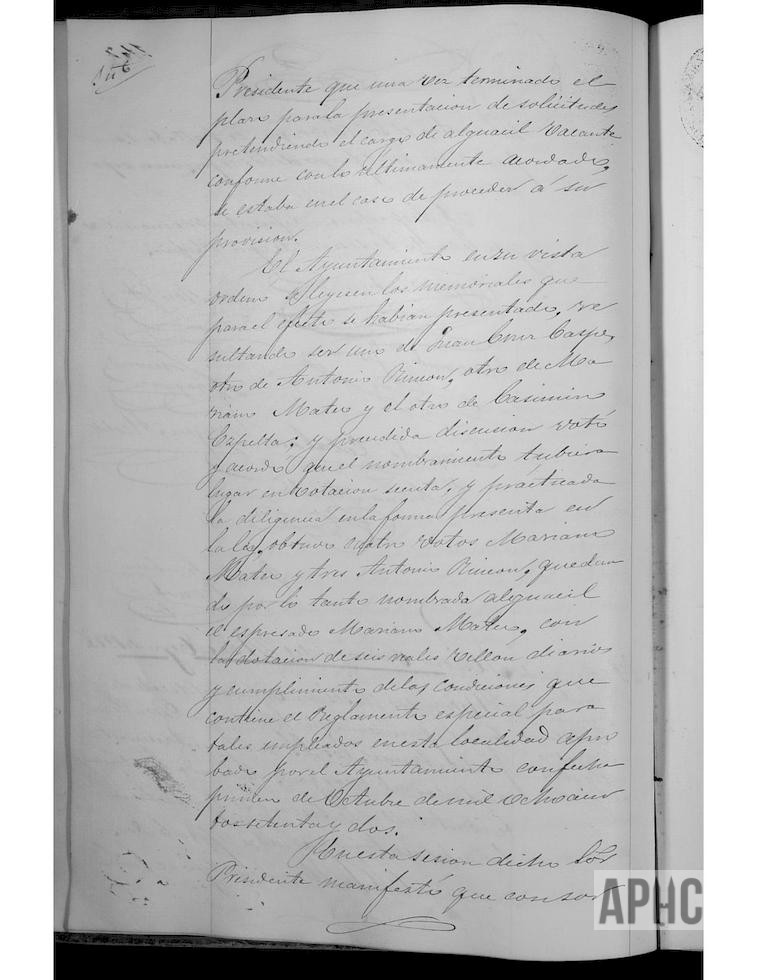 Presidente que una vez terminado el
plazo para la presentacion de solicitudes
pretendiendo el cargo de alguacil vacante
conforme con lo ultimamente acordado,
se estaba en el caso de proceder á su
provision.
El Ayuntamiento en su vista
ordenó se leyesen los memoriales que
para el efecto se habian presentado, re
sultando ser uno de Juan Cruz Caspe,
otro de Antonio Rincon, otro de Ma
riano Mateo y el otro de Casimiro
Ezpelta; y prendida discusion votó
y acordó que el nombramiento tubiera
lugar en votacion secreta, y practicada
la diligencia en la forma prescrita en
la ley, obtuvo cuatro votos Mariano
Mateo y tres Antonio Rincon, quedan
do por lo tanto nombrado alguacil
el espresado Mariano Mateo, con
la dotacion de seis reales vellon diarios
y cumplimiento de las condiciones que
contiene el Reglamento especial para
tales empleados en esta localidad apro
bado por el Ayuntamiento con fecha
primero de Octubre de mil ochocien
tos setenta y dos.
En esta sesion dicho Sor
Presidente manifestó que con sor
APHC